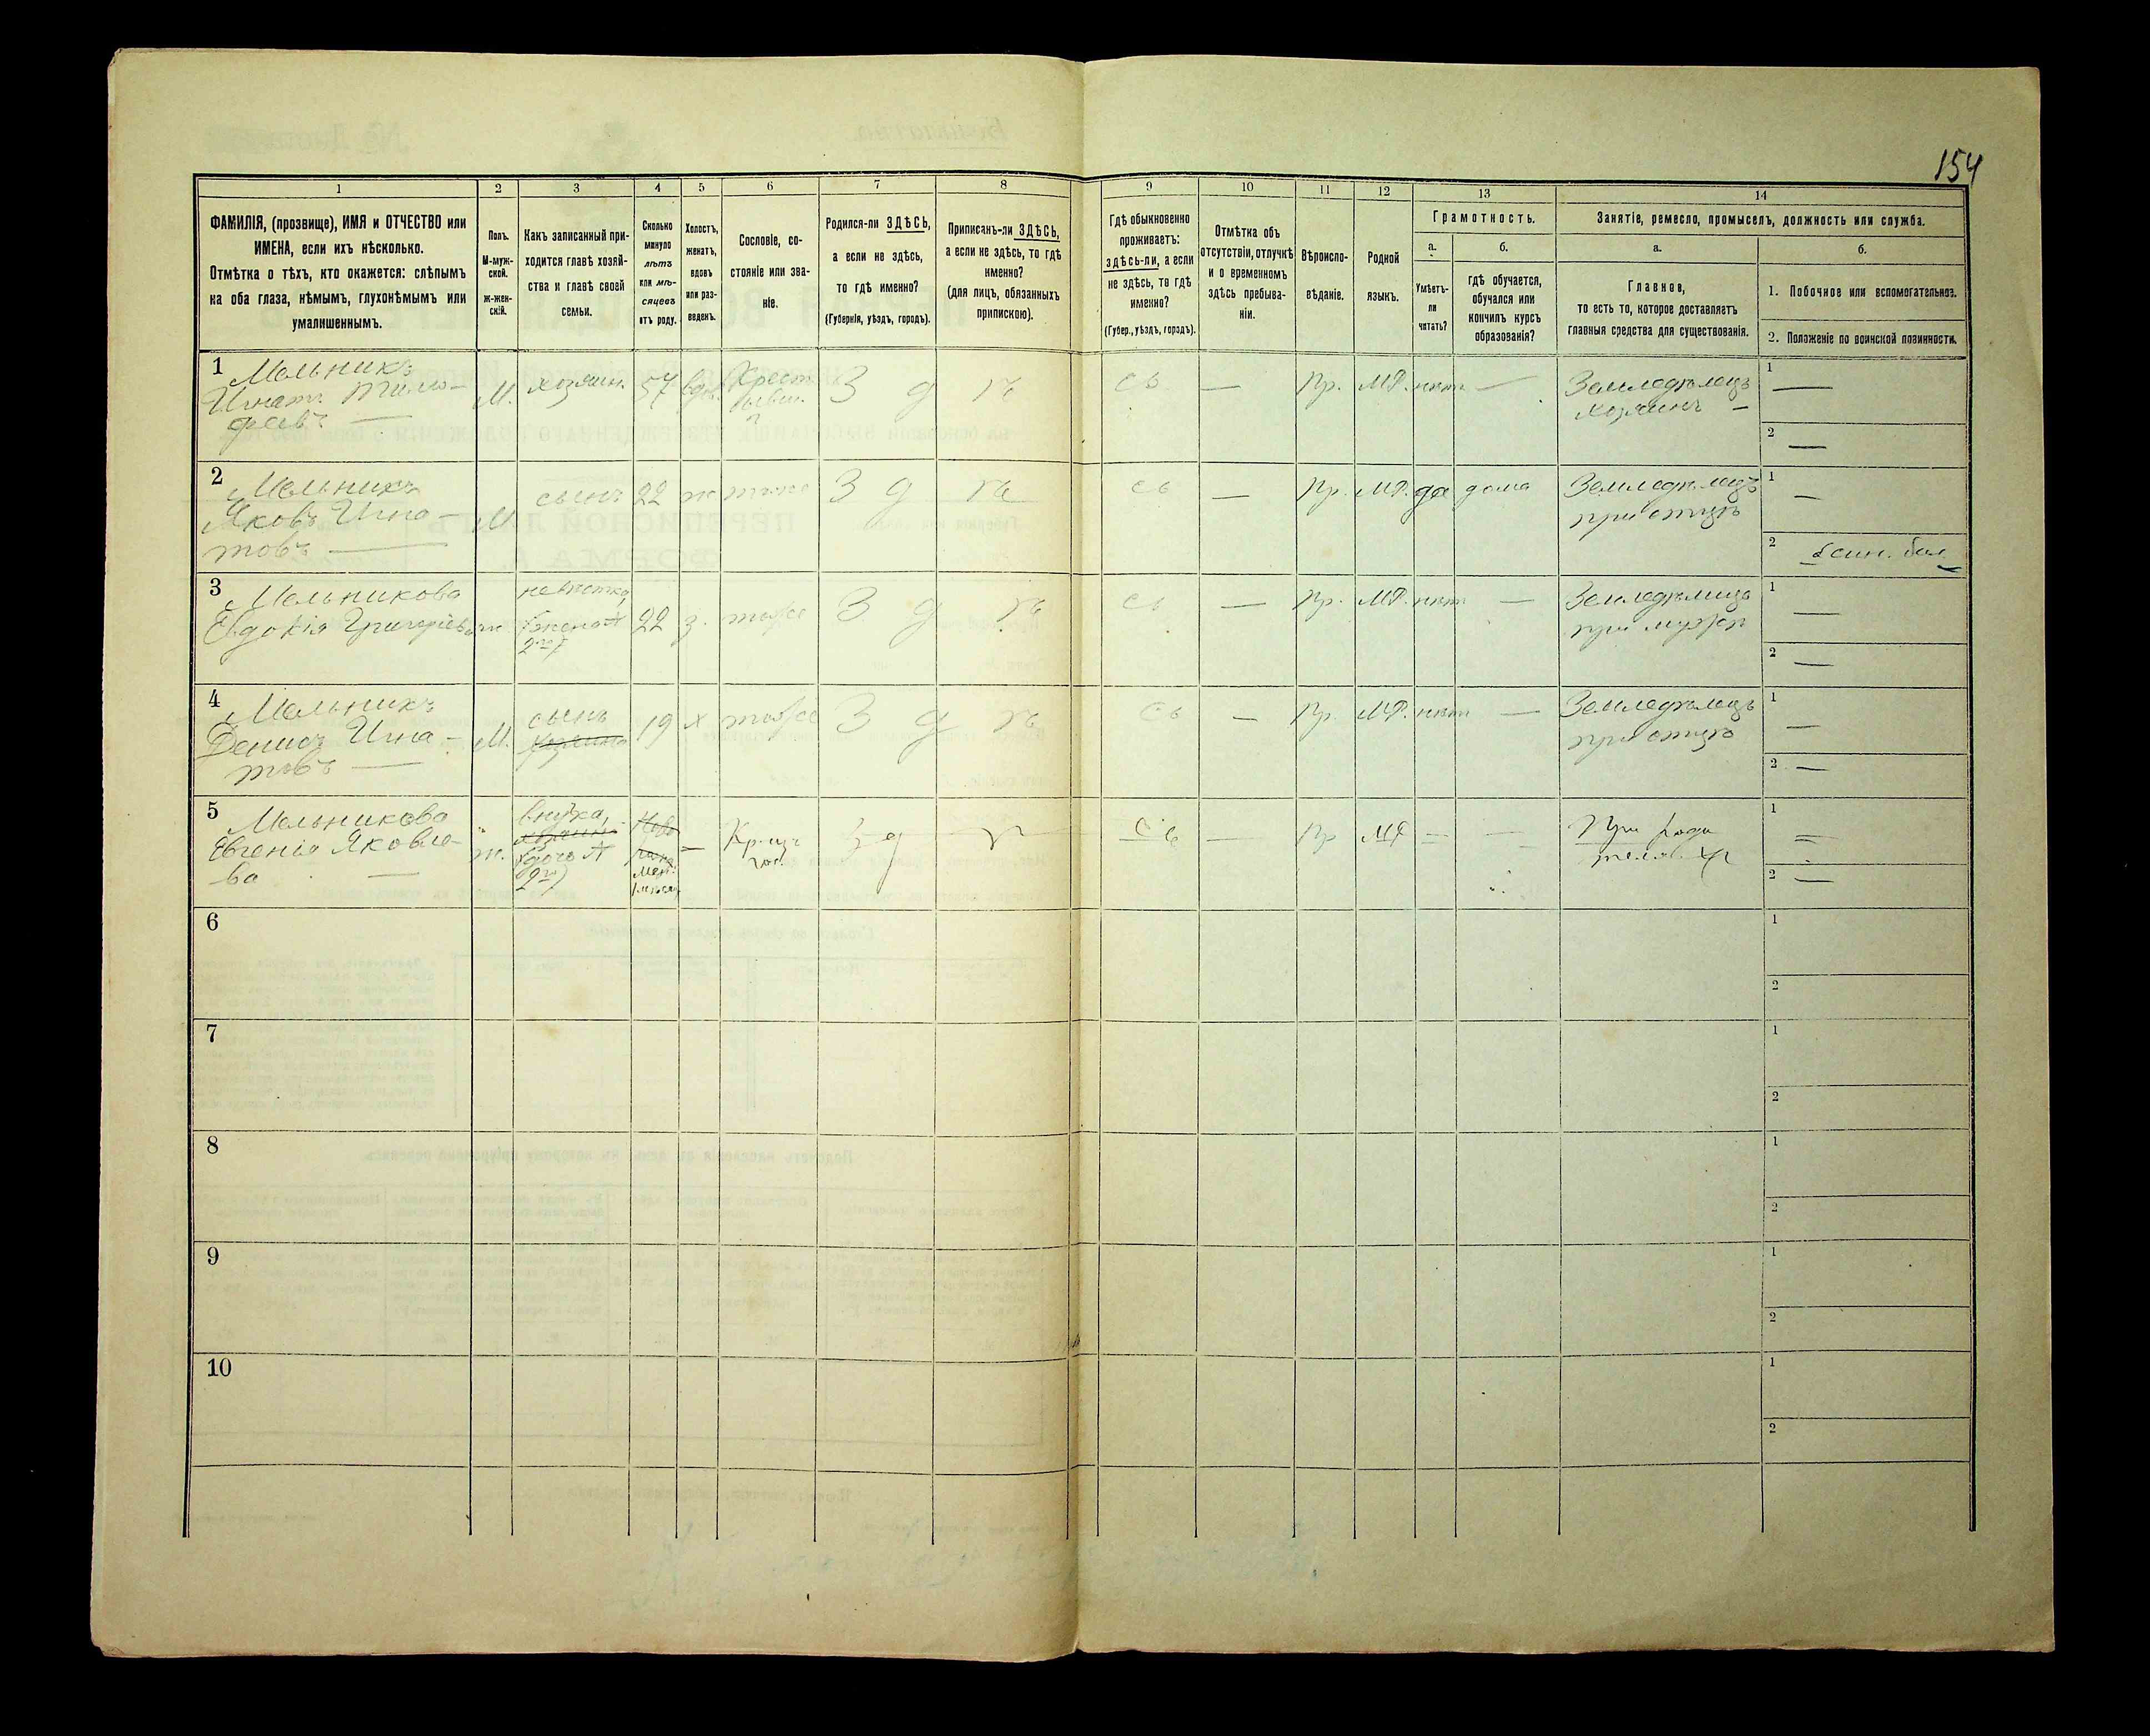 154
1 2 3 4 5 6 7 8 9 10 11 12 13 14
ФАМИЛІЯ, (прозвище), ИМЯ и ОТЧЕСТВО или
ИМЕНА, если ихъ нѣсколько.
Отмѣтка о тѣхъ, кто окажется: слѣпымъ
на оба глаза, нѣмымъ, глухонѣмымъ или
умалишеннымъ.
Полъ.
М-муж-
ской.
ж-жен-
скій.
Какъ записанный при-
ходится главѣ хозяй-
ства и главѣ своей
семьи.
Сколько
минуло
лѣтъ
или мѣ-
сяцевъ
отъ роду.
Холостъ,
женатъ,
вдовъ
или раз-
веденъ.
Сословіе, со-
стояніе или зва-
ніе.
Родился-ли ЗДѢСЬ,
а если не здѣсь,
то гдѣ именно?
(Губернія, уѣздъ, городъ).
Приписанъ-ли ЗДѢСЬ,
а если не здѣсь, то гдѣ
именно?
(для лицъ, обязанныхъ
припискою).
Гдѣ обыкновенно
проживаетъ:
здѣсь-ли, а если
не здѣсь, то гдѣ
именно?
(Губер., уѣздъ, городъ).
Отмѣтка объ
отсутствіи, отлучкѣ
и о временномъ
здѣсь пребыва-
ніи.
Вѣроиспо-
вѣданіе.
Родной
языкъ.
Грамотность.
а.
Умѣетъ-
ли
читать?
б.
Гдѣ обучается,
обучался или
кончилъ курсъ
образованія?
Занятіе, ремесло, промыселъ, должность или служба.
а.
Главное,
то есть то, которое доставляетъ
главныя средства для существованія.
б.
1. Побочное или вспомогательное.
2. Положеніе по воинской повинности.
1
Мельникъ
Игнатъ Тимо-
феевъ —
М.
хозяин.
57
вдов.
Крест.
З д ѣ
сь
—
Пр.
МР.
нѣтъ
—
Земледѣлецъ
хозяинъ —
1 —
2 —
2
Мельникъ
Яковъ Игна-
товъ —
М
сынъ
22
ж
тоже
З д ѣ
сь
—
Пр.
МР.
да
дома
Земледѣлецъ
при отцѣ
1 —
2
3
Мельникова
Евдокія Григорьева
ж.
невѣстка,
(жена №
2го)
22
з.
тоже
З д ѣ
сь
—
Пр.
МР.
нѣтъ
—
Земледѣлица
при мужѣ
1 —
2 —
4
Мельникъ
Денисъ Игна-
товъ —
М.
сынъ
хозяина
19
х
тоже
З д ѣ
сь
—
Пр.
МР.
нѣтъ
—
Земледѣлецъ
при отцѣ
1 —
2 —
5
Мельникова
Евгенія Яковле-
ва —
ж.
внучка,
(дочь №
2го)
—
З д ѣ
сь
—
Пр
МР
—
—
При роди
1
2 —
6
1
2
7
1
2
8
1
2
9
1
2
10
1
2